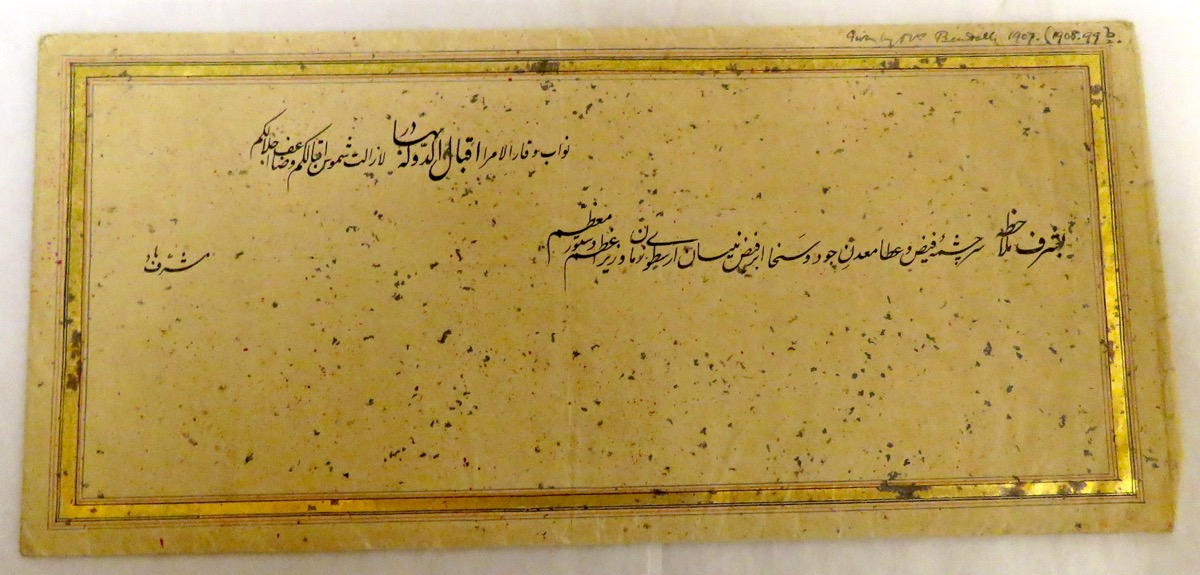 Given by Mrs Bendall 1909. (1908.99 b.
نواب وقار الامرا اقبال الدوله بهادر لازالت شموس اقبالکم وضاعف اجلالکم
بشرف ملاحظه سرچشمۀ فیض و عطا معدنِ جود و سَخا ابر فیض نیسان ارسطوی زمان وزیر اعظم و دستور معظم
مشرف باد